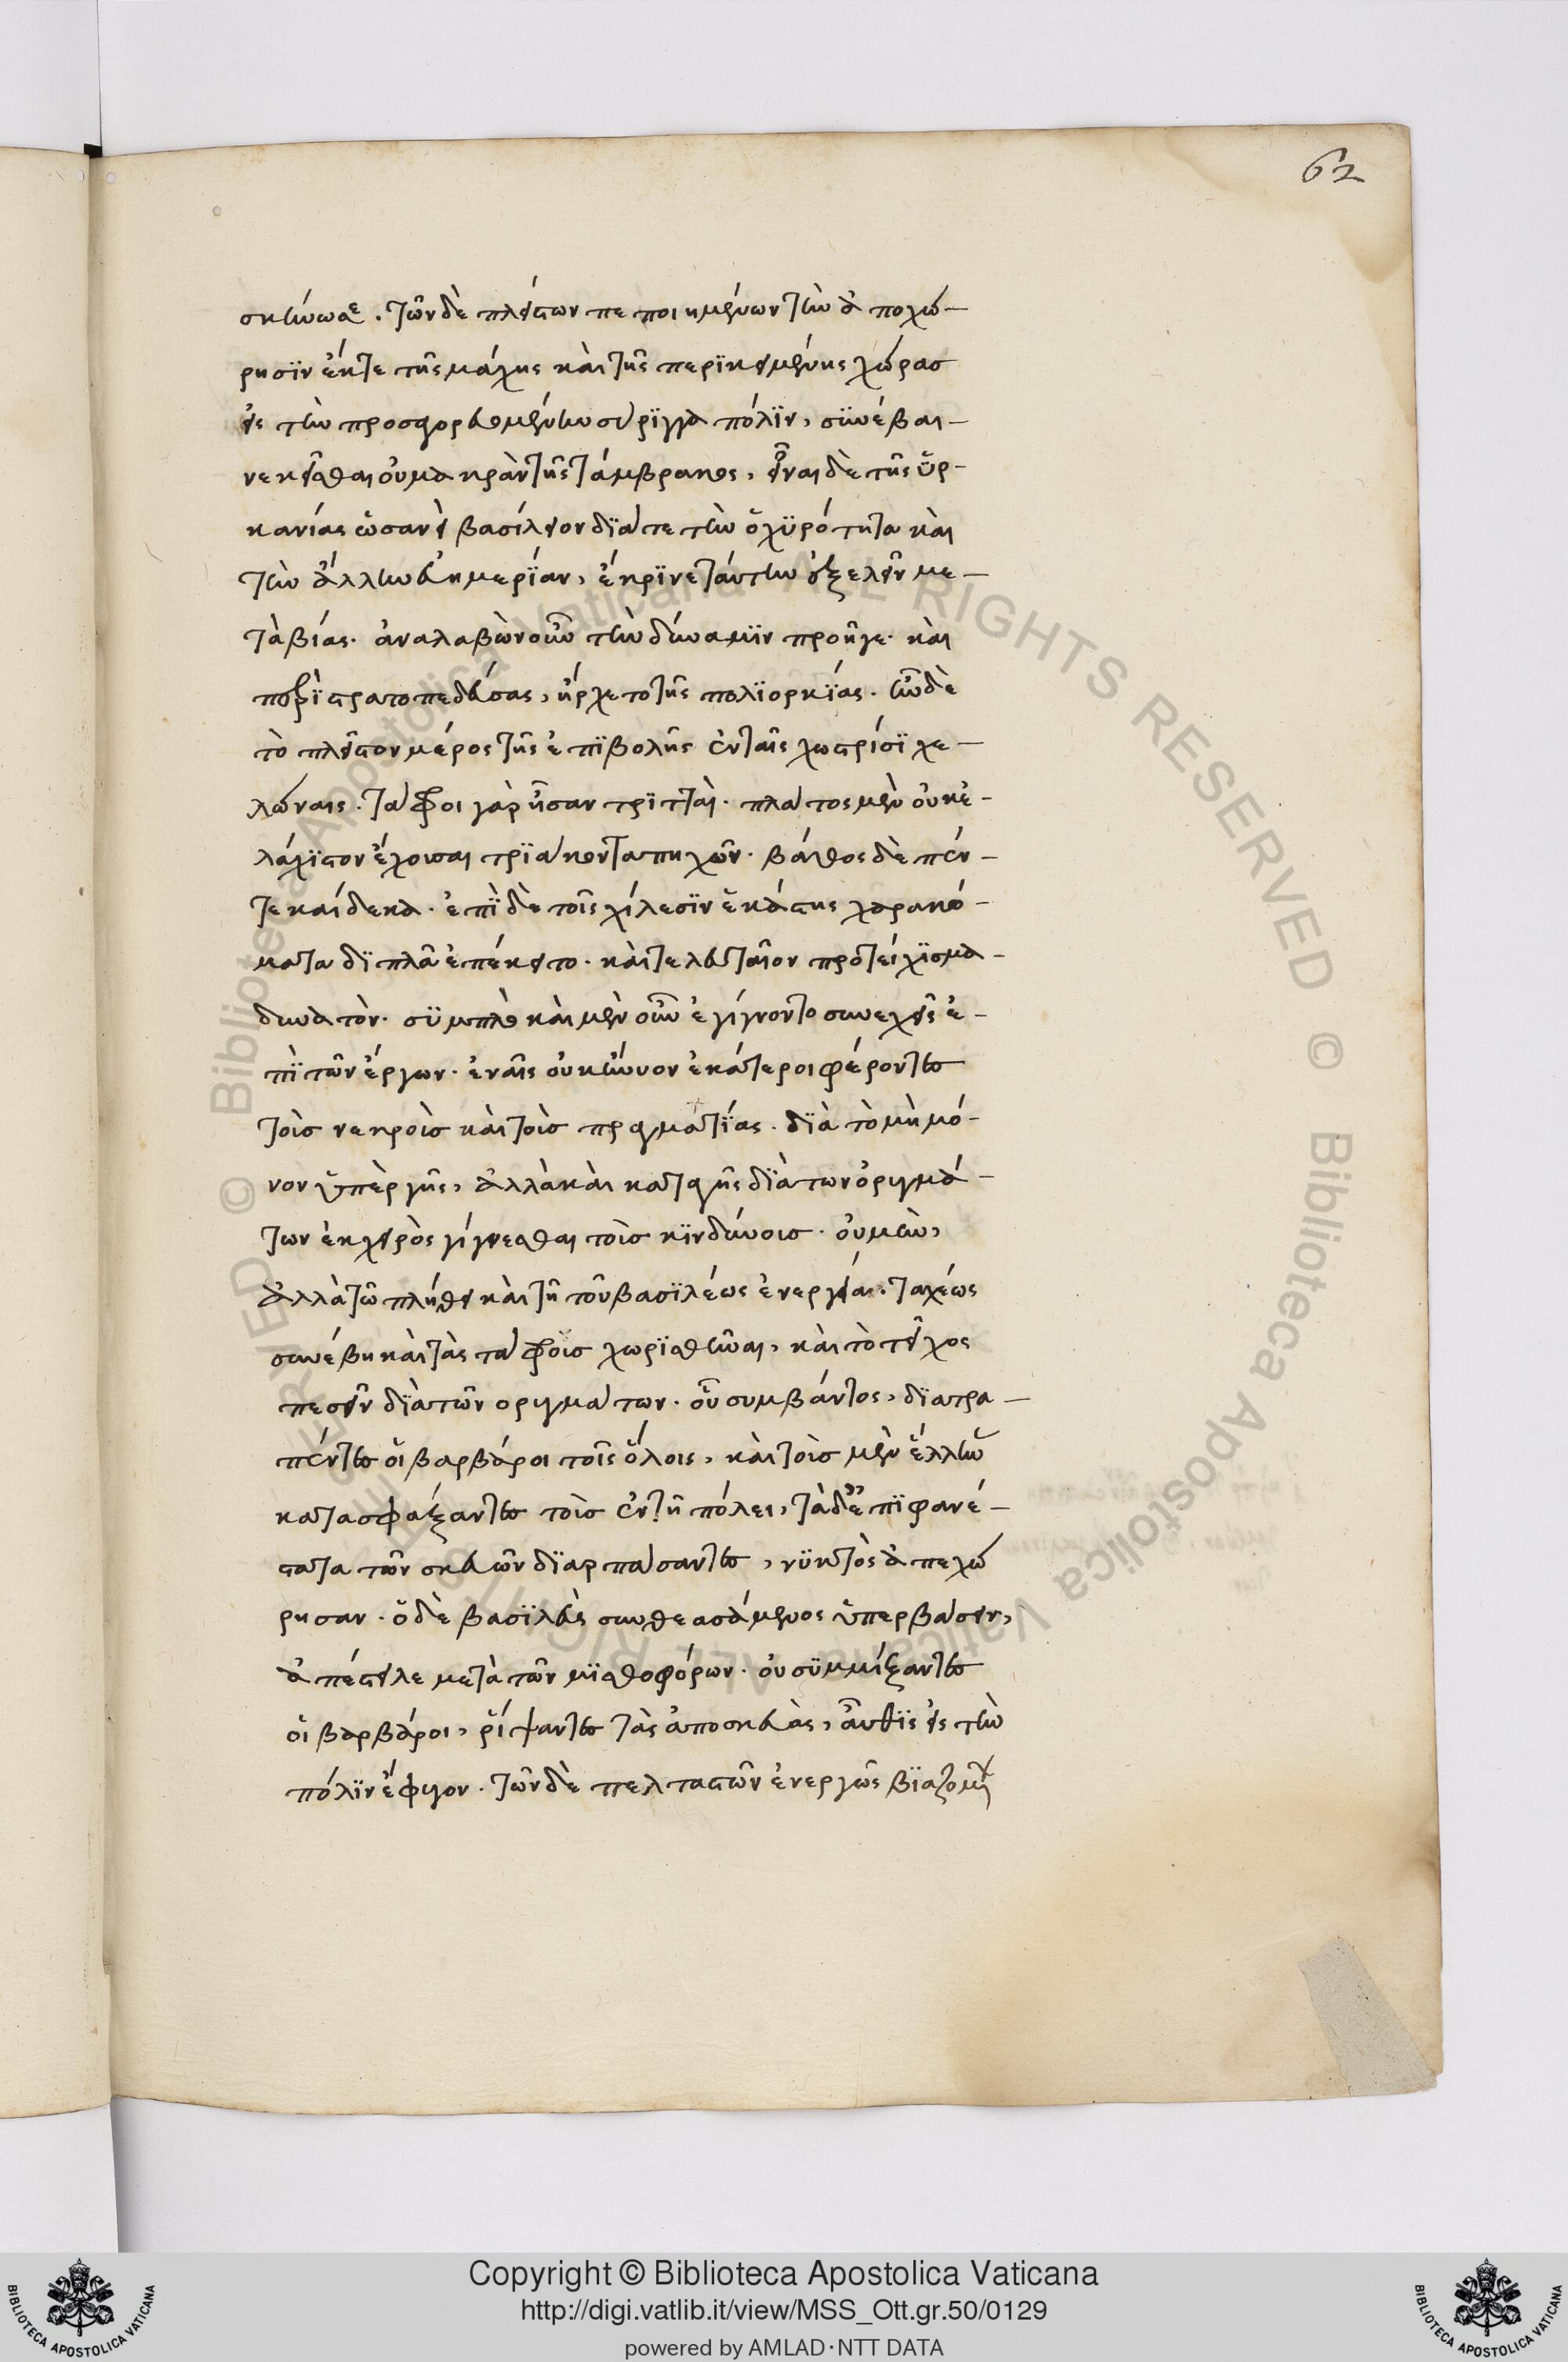 62
σκηνώσας. τῶν δὲ πλείστων πεποιημένων τὴν ἀποχώ-
ρησϊν ἔκτε τῆς μάχης καὶ τῆς περϊκειμένης χώρας
εἰς τὴν προσαγορευομένην σύρϊγγα πόλϊν, σϋνέβαι-
νε κεῖσθαι οὐμακρὰν τῆς τάμβρακος, εἶναι δὲ τῆς ὑρ-
κανίας ὡσανεὶ βασίλειον δϊά τε τὴν ὀχϋρότητα καὶ
τὴν ἄλλην εὐημερίαν, ἔκρϊνε ταύτην ἐξελεῖν με-
τὰ βίας. ἀναλαβὼν οὖν τὴν δύναμϊν προῆγε. καὶ
περϊστρατοπεδεύσας, ἤρχετο τῆς πολϊορκϊας. ἦν δὲ
τὸ πλεῖστον μέρος τῆς ἐπϊβολῆς ἐν ταῖς χωστρίσϊ χε-
λώναις. τάφροι γὰρ ἦσαν τρϊτταὶ. πλάτος μὲν οὐκ ἐ-
λάχϊστον ἔχουσαι τρϊάκοντα πηχῶν. βάθος δὲ πέν-
τε καίδεκα. ἐπὶ δὲ τοῖς χίλεσϊν ἑκάστης χαρακό-
ματα δϊπλᾶ ἐπέκειτο. καὶ τελευταῖον προτείχϊσμα
δυνατὸν. σϋμπλοκαὶ μὲν οὖν ἐγίγνοντο συνεχεῖς ἐ-
πὶ τῶν ἔργων. ἐν αἷς οὐκ ἤνυον ἑκάτεροι φέροντες
τοὺς νεκροὺς καὶ τοὺς τραυματίας. δϊὰ τὸ μὴ μό-
νον ὑπὲρ γῆς, ἀλλὰ καὶ κατὰ γῆς δϊὰ των ὀρυγμά-
των ἐκ χειρὸς γίγνεσθαι τοὺς κϊνδύνους. οὐ μὴν,
ἀλλὰ τῶ πλήθει καὶ τῆ τοῦ βασϊλέως ἐνεργείαι. ταχέως
συνέβη καὶ τὰς τάφρους χωρϊσθῆναι, καὶ τὸ τεῖχος
πεσεῖν δϊὰ τῶν ορυγμάτων. οὗ συμβάντος, δϊατρα-
πέντες οἱ βαρβάροι τοῖς ὅλοις, καὶ τοὺς μὲν ἕλλην
κατασφάξαντες τοὺς ἐν τῆ πόλει, τὰ δ' ἐπϊφανέ-
στατα τῶν σκευῶν δϊαρπάσαντες, νϋκτὸς ἀπεχώ
ρησαν. ὁ δὲ βασϊλεὺς συνθεασάμενος ὑπερβάσειν,
ἀπέστειλε μετὰ τῶν μϊσθοφόρων. οὐ σϋμμίξαντες
οἱ βαρβάροι, ῥίψαντες τὰς ἀποσκευὰς, αὖθϊς εἰς τὴν
πόλϊν ἔφυγον. τῶν δὲ πελταστῶν ἐνεργῶς βϊαζομέ
Copyright © Biblioteca Apostolica Vaticana
http://digi.vatlib.it/view/MSS_Ott.gr.50/0129
powered by AMLAD·NTT DATA
BIBLIOTECA APOSTOLICA VATICANA
BIBLIOTECA APOSTOLICA VATICANA
© Biblioteca Apostolica Vaticana ALL RIGHTS RESERVED © Biblioteca Apostolica Vaticana ALL RIGHTS RESERVED